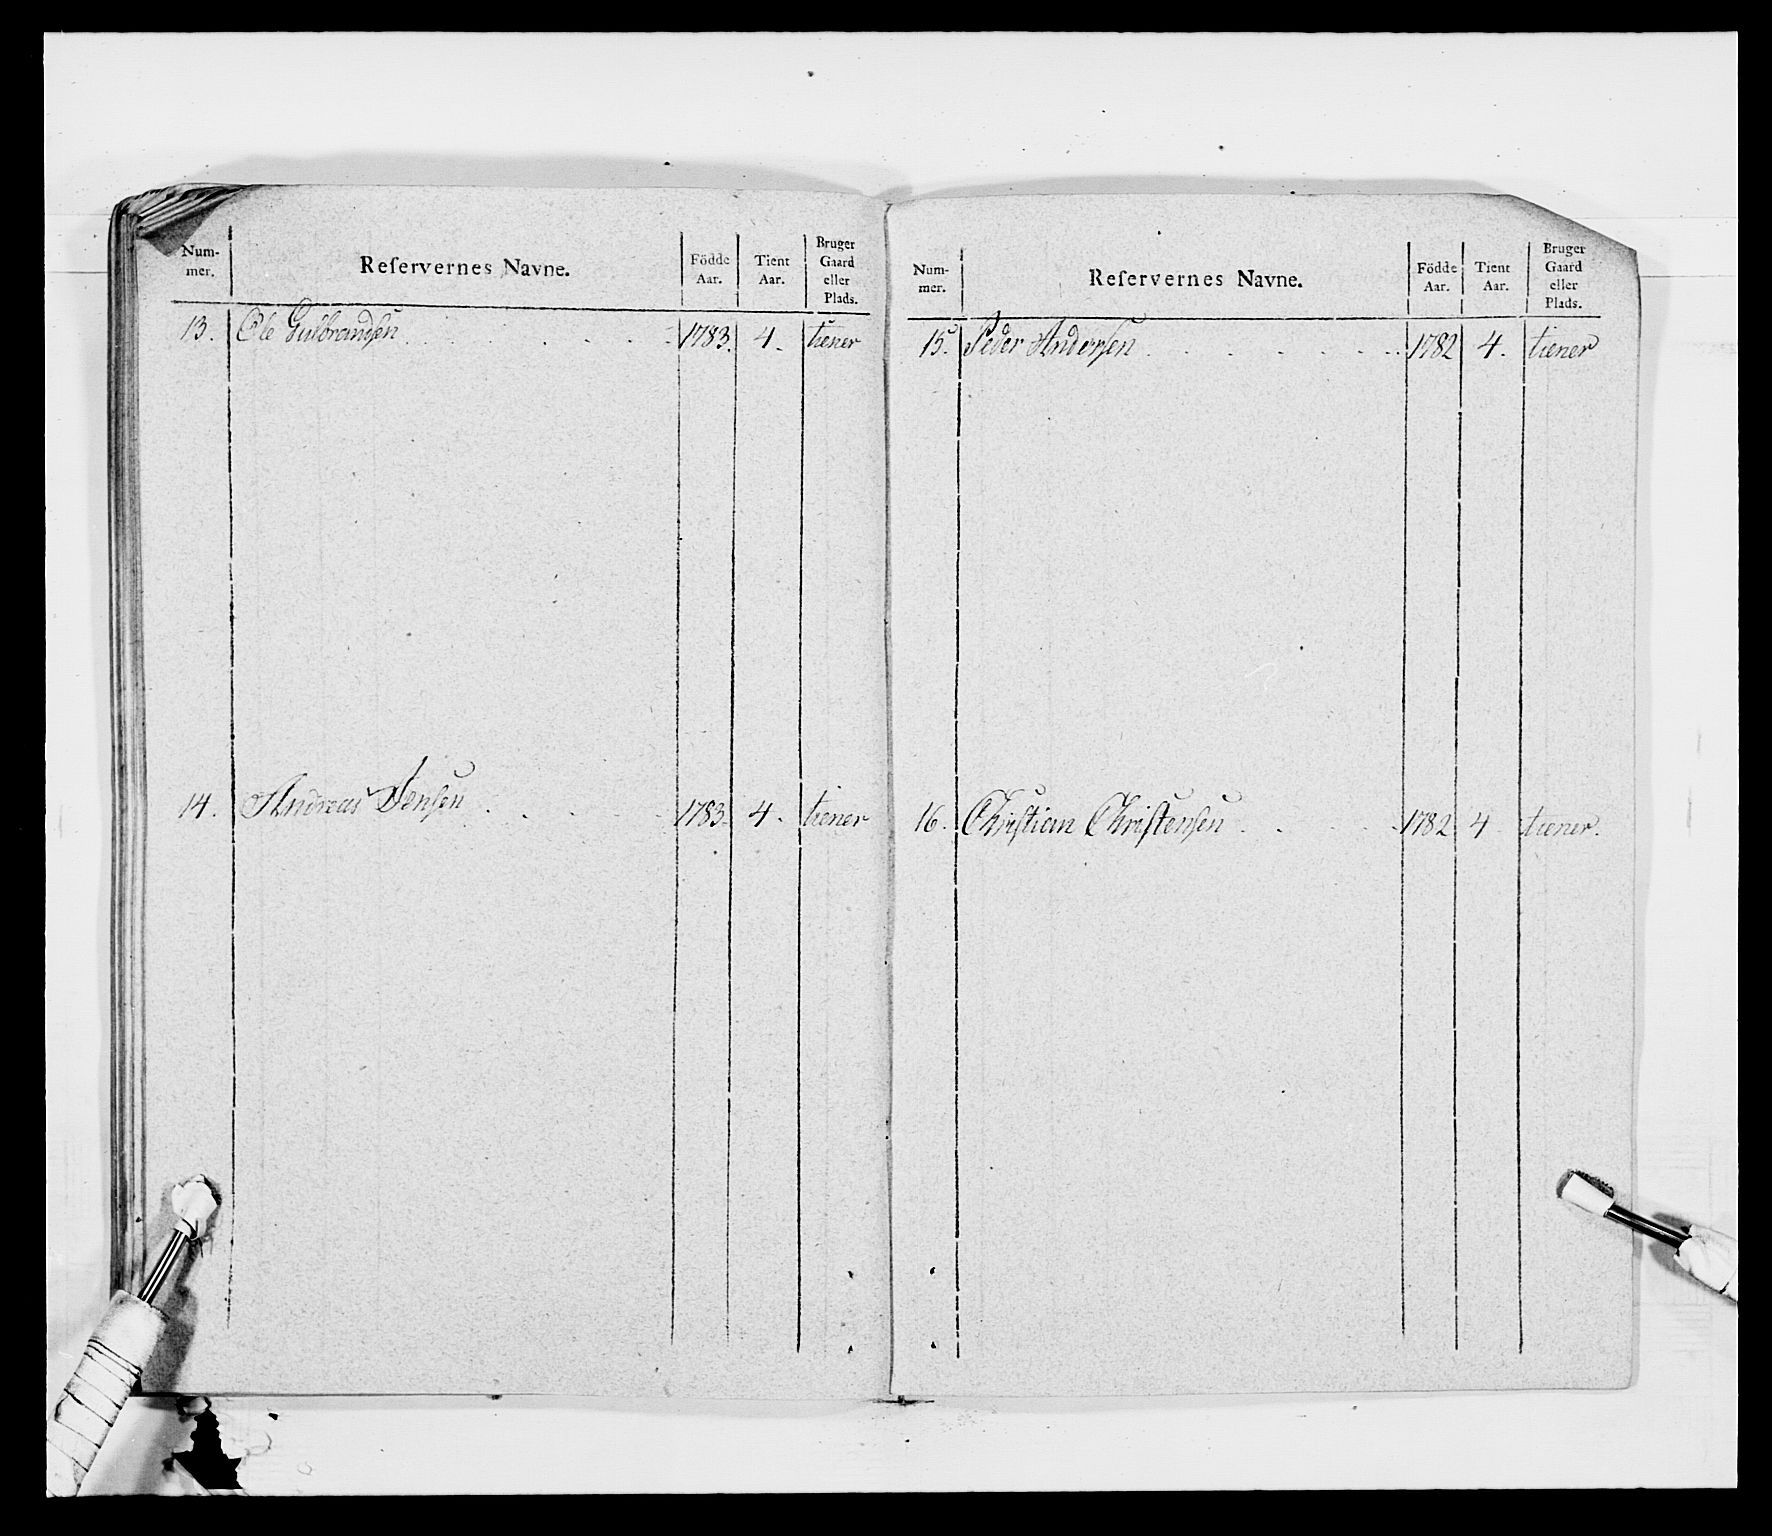 Num-
mer.
Reservernes Navne.
Födde
Aar.
Tient
Aar.
Bruger
Gaard
eller
Plads.
13. Ole Gulbrandsen 1783. 4. tiener
14. Andreas Jensen 1783. 4. tiener
Num-
mer.
Reservernes Navne.
Födde
Aar.
Tient
Aar.
Bruger
Gaard
eller
Plads.
15. Peder Andersen 1782 4. tiener
16. Christian Christensen 1782 4 tiener.